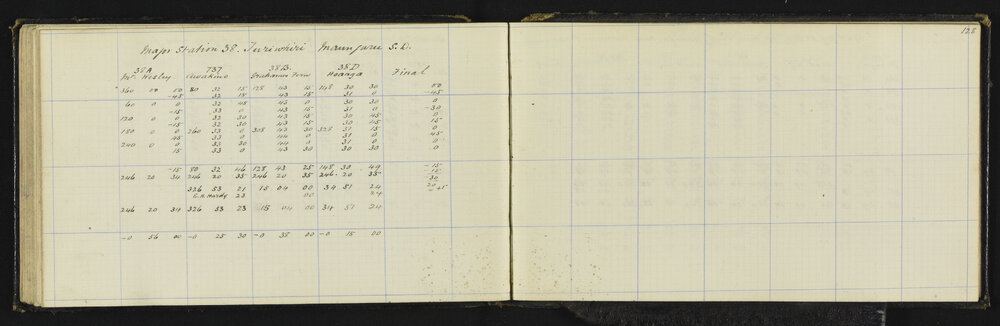 128
Major Station 38. Turiwhiri Maungaru S.D.
38A 737 38B. 38D
Mt. Wesley Grahams Fern Hoanga Final
360 00 00 80 32 15 128 43 15 148 30 30 00
-45 32 15 43 15 31 0 -45
60 0 0 32 45 43 0 30 30 0
-15 33 0 43 15 31 0 -30
120 0 0 32 30 43 15 30 45 0
-15 32 30 43 15 30 45 15
180 0 0 260 33 0 308 43 30 328 31 15 0
45 33 0 44 0 31 0 45
240 0 0 33 30 44 0 31 0 0
15 33 0 43 30 30 30 0
-15 80 32 46 128 43 25 148 30 49 -15
246 20 34 246 20 35 246 20 35 246 20 35 -15
-30
326 53 21 15 04 00 34 51 24 20
E.H. Hardy 23 00 24
246 20 34 326 53 23 15 04 00 34 51 24
-0 56 00 -0 25 30 -0 38 00 -0 15 00